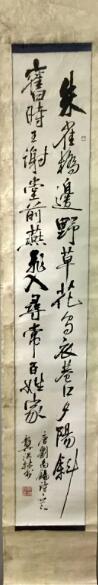 朱雀橋邊野草花烏衣巷口夕陽斜
舊時王謝堂前燕飛入尋常百姓家
唐劉禹錫詩